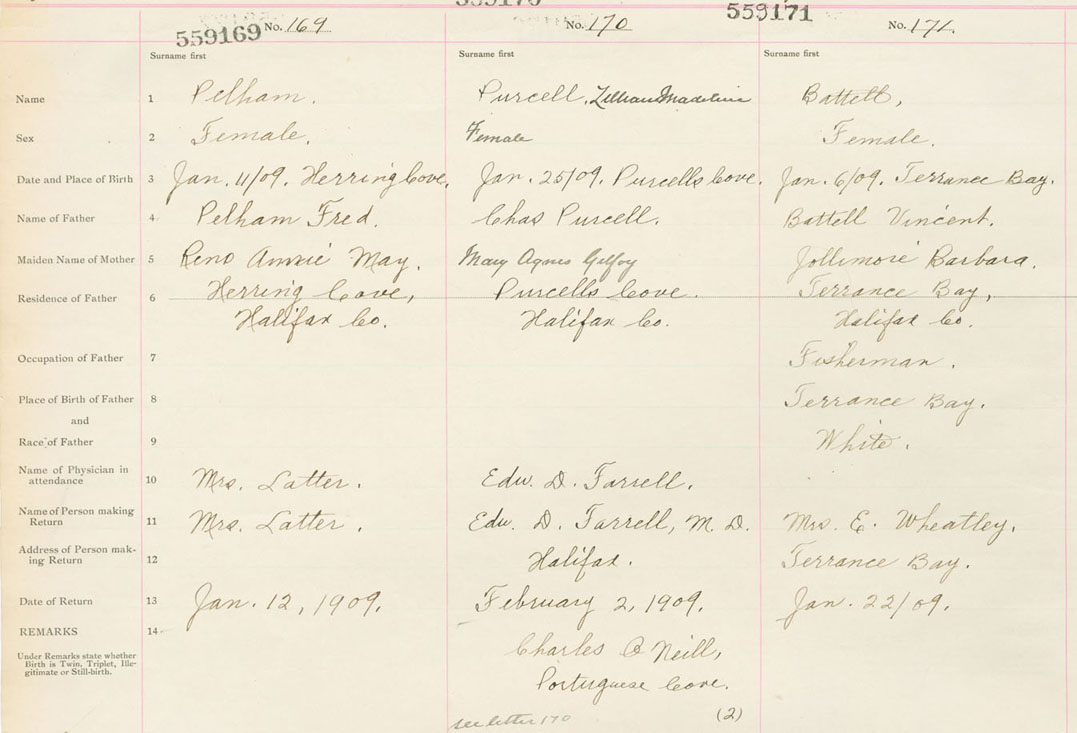 559170
559171
559169 No. 169
No. 170
No. 171.
Surname first
Surname first
Surname first
Name 1 Pelham. Purcell, Lillian Madeline Battell,
Sex 2 Female. Female Female.
Date and Place of Birth 3 Jan. 11/09. Herring Cove. Jan. 25/09. Purcells Cove. Jan. 6/09. Terrance Bay.
Name of Father 4 Pelham Fred. Chas Purcell. Battell Vincent.
Maiden Name of Mother 5 Reno Annie May. Mary Agnes Gilfoy Jollimore Barbara.
Residence of Father 6 Herring Cove, Purcells Cove. Terrance Bay,
Halifax Co. Halifax Co. Halifax Co.
Occupation of Father 7 Fisherman.
Place of Birth of Father 8 Terrance Bay.
and
Race of Father 9 White.
Name of Physician in
attendance 10 Mrs. Latter. Edw. D. Farrell.
Name of Person making
Return 11 Mrs. Latter. Edw. D. Farrell, M. D. Mrs. E. Wheatley.
Address of Person mak-
ing Return 12 Halifax. Terrance Bay.
Date of Return 13 Jan. 12, 1909. February 2, 1909. Jan. 22/09.
REMARKS 14
Under Remarks state whether
Birth is Twin, Triplet, Ille-
gitimate or Still-birth.
Charles O Neill,
Portuguese Cove.
see letter 170 (2)